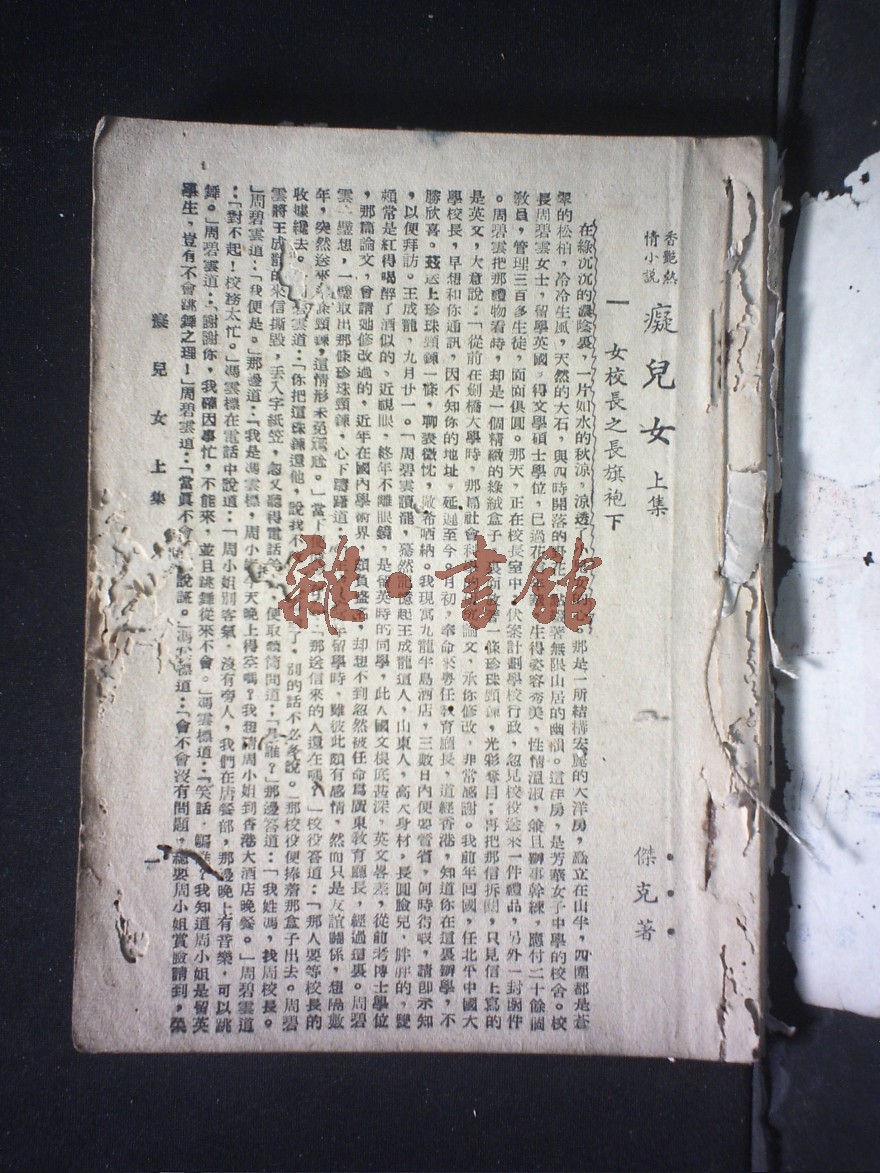 香艷熱情小說
癡兒女 上集
傑克著
一 女校長之長旗袍下
在綠沉沉的濃陰裏,一片如水的秋涼,涼透了 那是一所結構宏麗的大洋房,矗立在山半,四圍都是蒼
翠的松柏,冷冷生風,天然的大石,與四時開落的 着無限山居的幽情。這洋房,是芳華女子中學的校舍。校
長周碧雲女士,留學英國,得文學碩士學位,已過花 生得姿容秀美,性情溫淑,兼且辦事幹練,應付二十餘個
敎員,管理三百多生徒,面面俱圓。那天,正在校長室中 伏案計劃學校行政,忽見校役送來一件禮品,另外一封函件
。周碧雲把那禮物看時,却是一個精緻的綠絨盒子, 裏頭放着一條珍珠頸鍊,光彩奪目;再把那信拆開,只見信上寫的
是英文,大意說:「從前在劍橋大學時,那屆社會科學的 論文,承你修改,非常感謝。我前年囘國,任北平中國大
學校長,早想和你通訊,因不知你的地址,延遲至今 月初,奉命來粵任敎育廳長,道經香港,知道你在這裏辦學,不
勝欣喜。茲送上珍珠頸鍊一條,聊表微忱,敬希哂納。我現寓九龍半島酒店,三數日內便要晉省,何時得暇,請卽示知
,以便拜訪。王成龍,九月廿一。」周碧雲讀罷,驀然 憶起王成龍這人,山東人,高大身材,長圓臉兒,胖胖的,雙
頰常是紅得喝醉了酒似的,近視眼,終年不離眼鏡,是留英時的同學,此人國文根底甚深,英文畧差,從前考博士學位
,那篇論文,曾請她修改過的,近年在國內學術界,頗負盛名,却想不到忽然被任命爲廣東敎育廳長,經過這裏。周碧
雲一壁想,一壁取出那條珍珠頸鍊,心下躊躇道: 留學時,雖彼此頗有感情,然而只是友誼關係,想隔數
年,突然送來 條頸鍊,這情形未免尷尬。」當下 「那送信來的人還在嗎?」校役答道:「那人要等校長的
收據纔去。 雲道:「你把這珠鍊還他,說我不 了,別的話不必多說。」那校役便捧着那盒子出去。周碧
雲將王成龍的來信撕毀,丟入字紙笠,忽又聽得電話 ,便取聽筒問道:「是誰?」那邊答道:「我姓馮,找周校長。
」周碧雲道:「我便是。」那邊道:「我是馮雲標,周小姐今天晚上得空嗎?我想請周小姐到香港大酒店晚餐。」周碧雲道
:「對不起!校務太忙。」馮雲標在電話中說道:「周小姐別客氣,沒有旁人,我們在唐餐部,那邊晚上有音樂,可以跳
舞。」周碧雲道:「謝謝你,我確因事忙,不能來,並且跳舞從來不會。」馮雲標道:「笑話,騙誰?我知道周小姐是留英
學生,豈有不會跳舞之理!」周碧雲道:「當眞不會, 說謊。」馮雲標道:「會不會沒有問題,總要周小姐賞臉請到,
癡兒女 上集
一
雜·書館